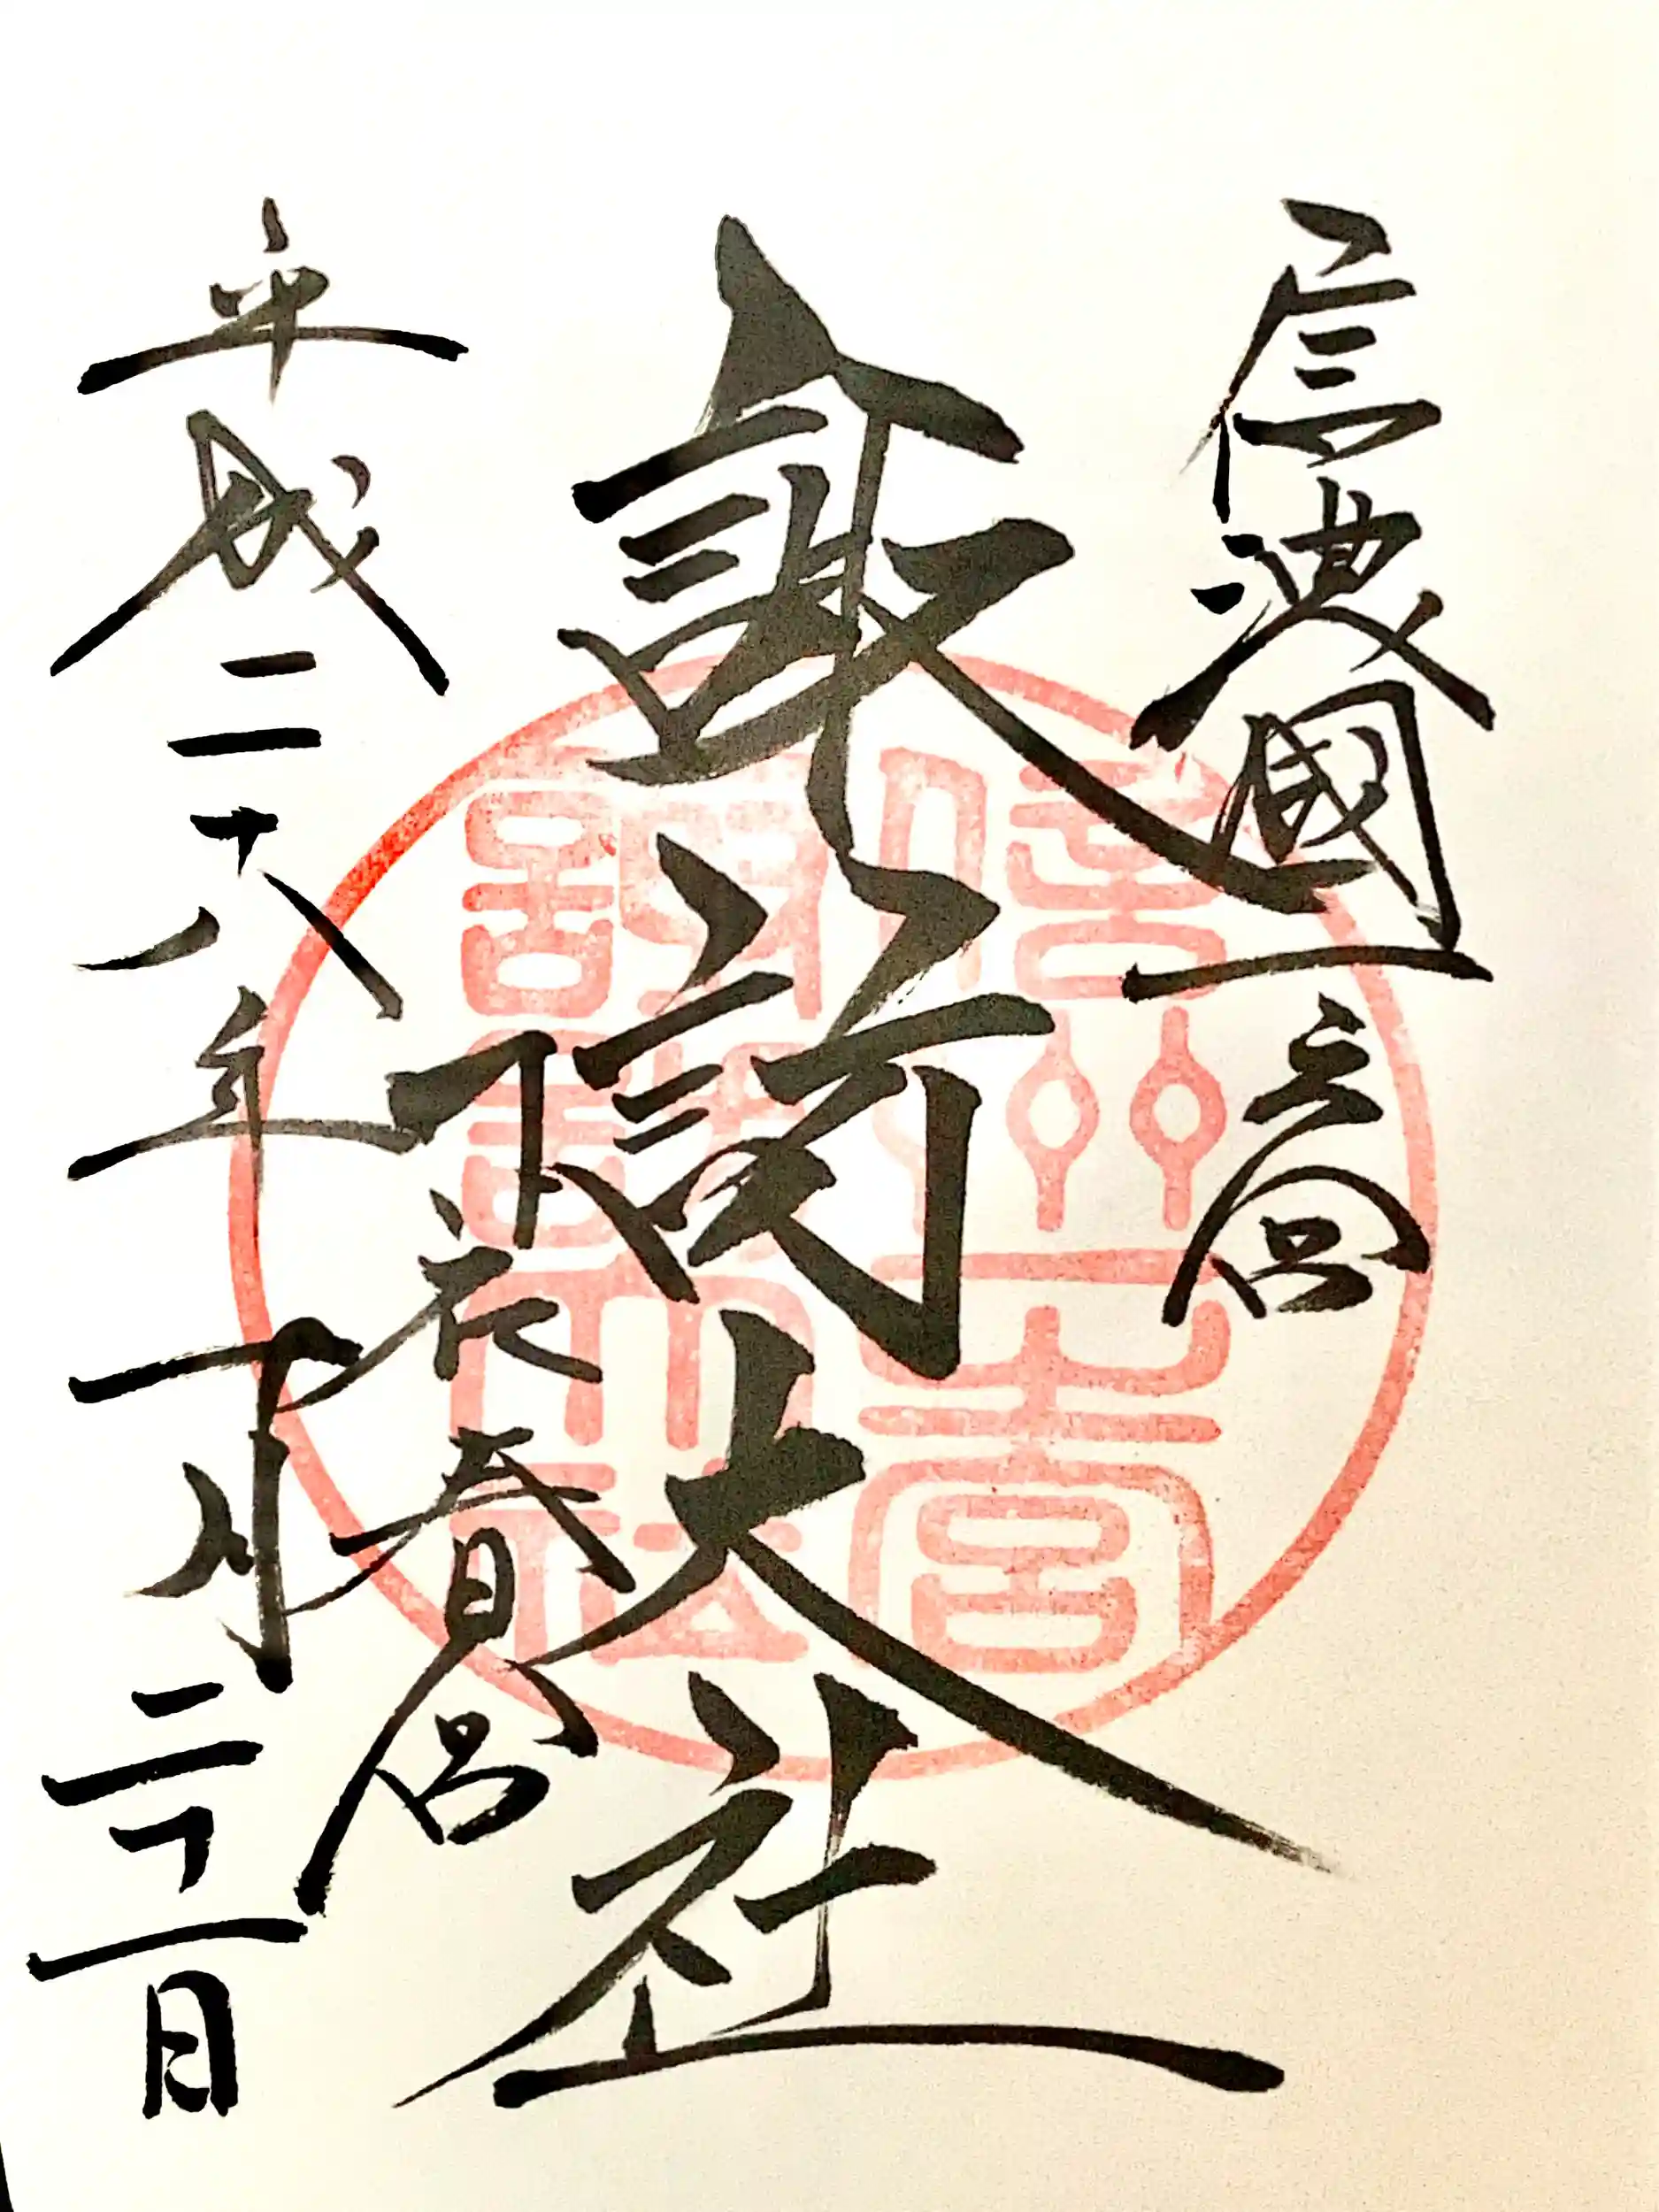 信濃國一之宮
諏訪大社
下社春宮
平成二十八年 月二十一日
信州一之宮
諏訪大社